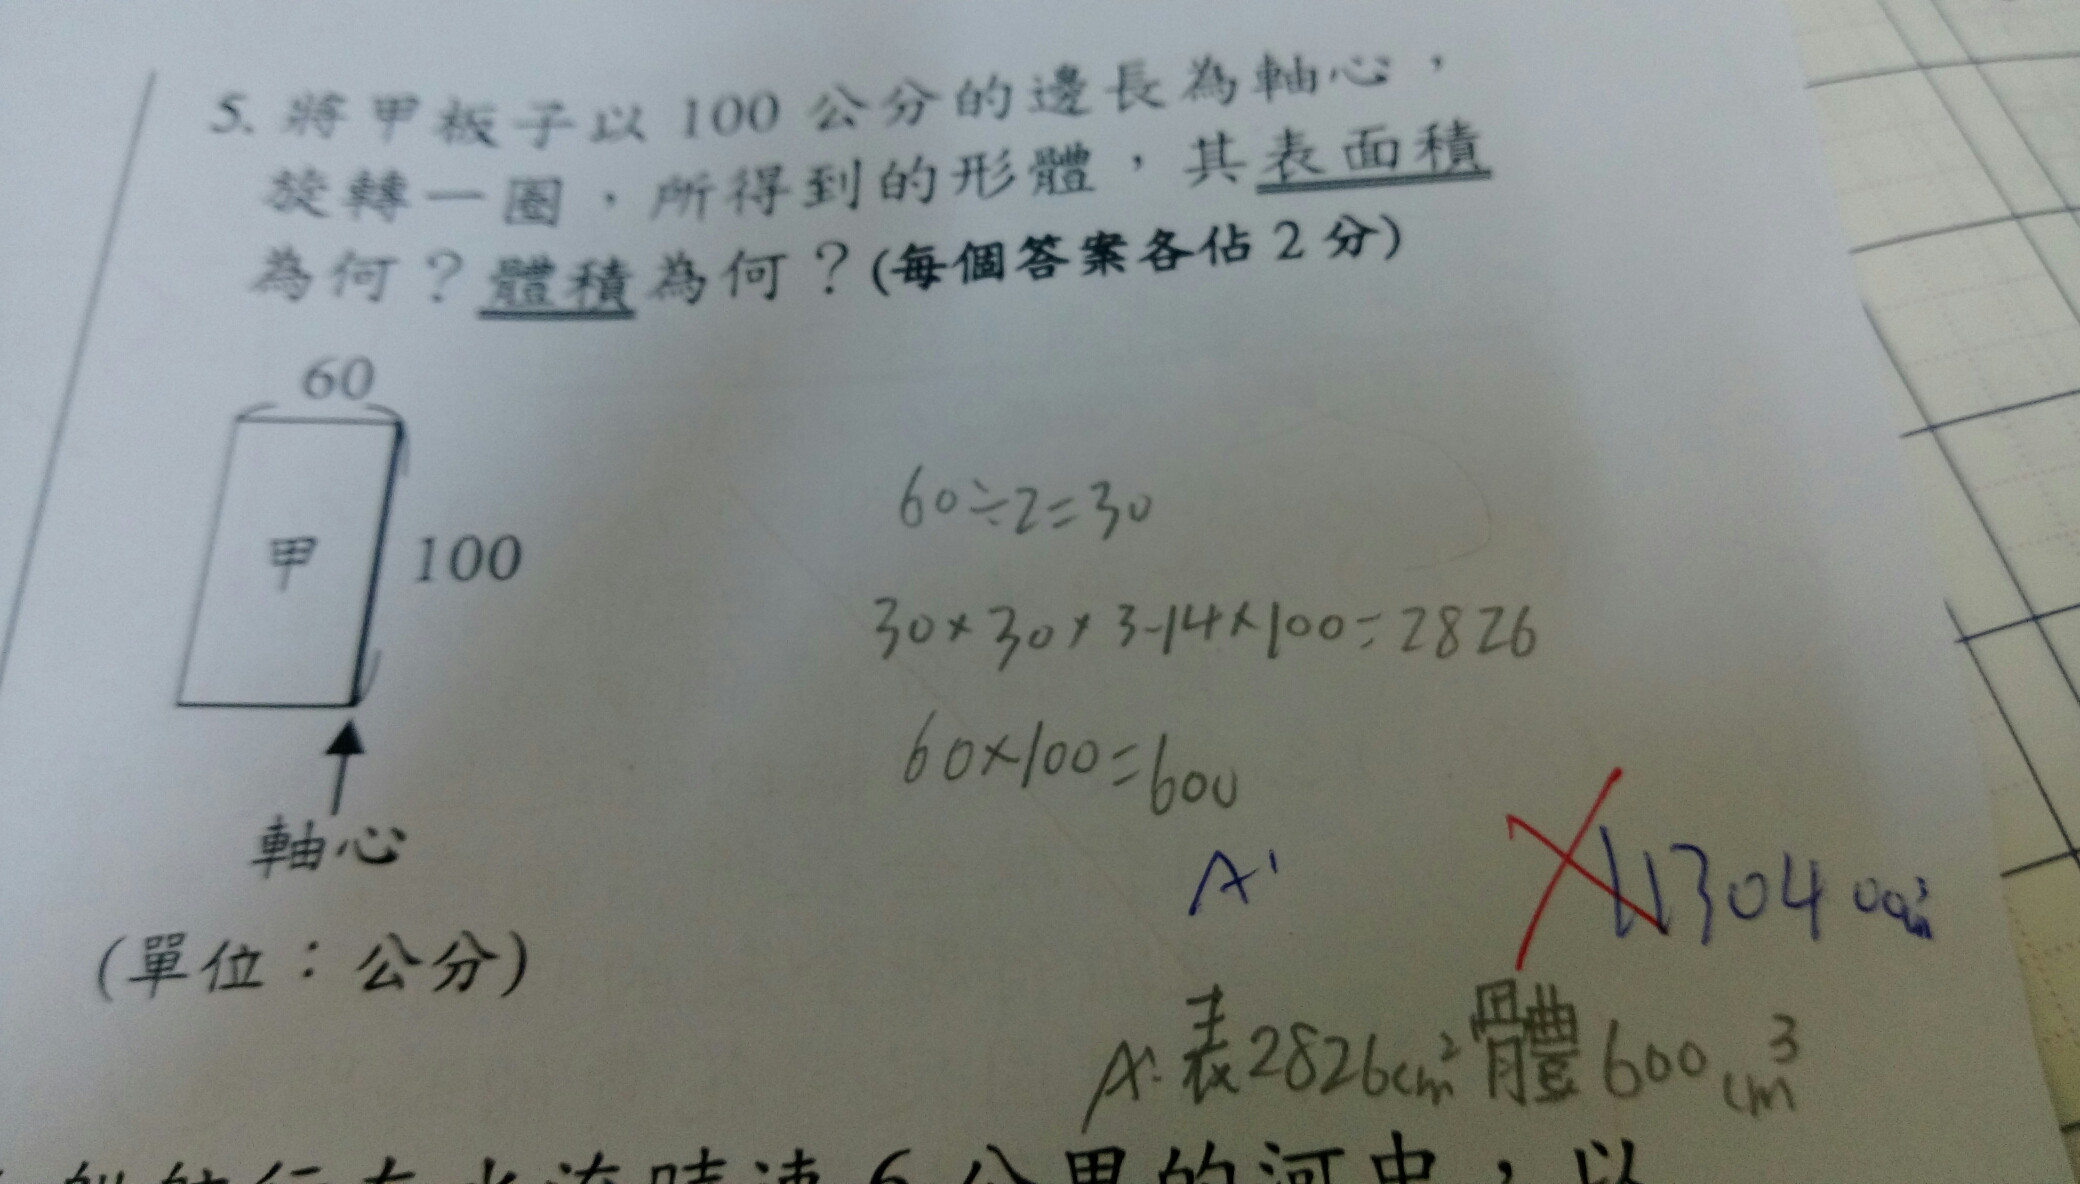 5. 將甲板子以 100 公分的邊長為軸心，
旋轉一圈，所得到的形體，其表面積
為何？體積為何？(每個答案各佔 2 分)
60
甲
100
軸心
(單位：公分)
60÷2=30
30×30×3.14×100=2826
60×100=600
A:
1130400cm³
A: 表2826cm² 體600cm³
航行在水流時速 6 公里的河中，以